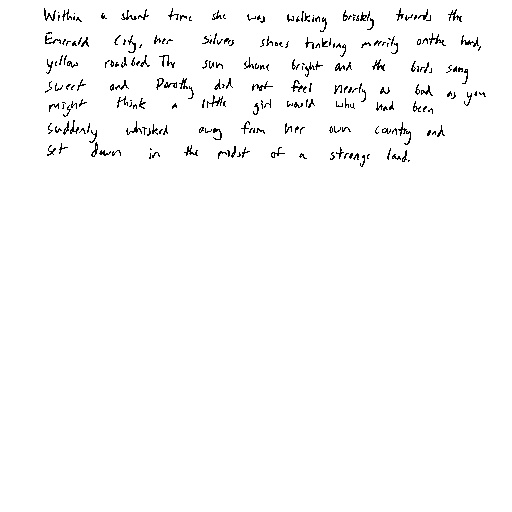 Within a short time she was walking briskly towards the
Emerald City, her Silvers shoes tinkling merrily onthe hard,
yellow roadbed. The sun shone bright and the birds sang
sweet and Dorothy did not feel nearly as bad as you
might think a little girl would who had been
suddenly whisked away from her own country and
set down in the midst of a strange land.